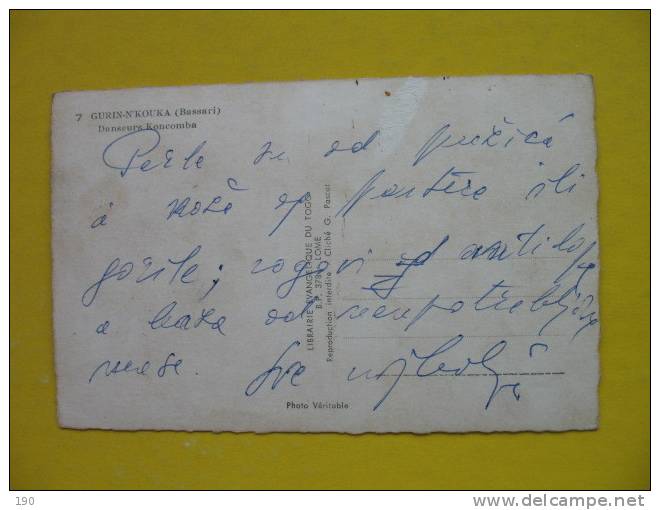 7 GURIN-N'KOUKA (Bassari)
Danseurs Koncomba
Perle su od pužića
a kože od pantere ili
gorile; rogovi od antilope
a kapa od neupotrebljive
mreže. Sve najbolje
LIBRAIRIE EVANGELIQUE DU TOGO
B.P. 378 LOME
Reproduction interdite - Cliché G. Pascot
Photo Véritable
190
delcampe.net